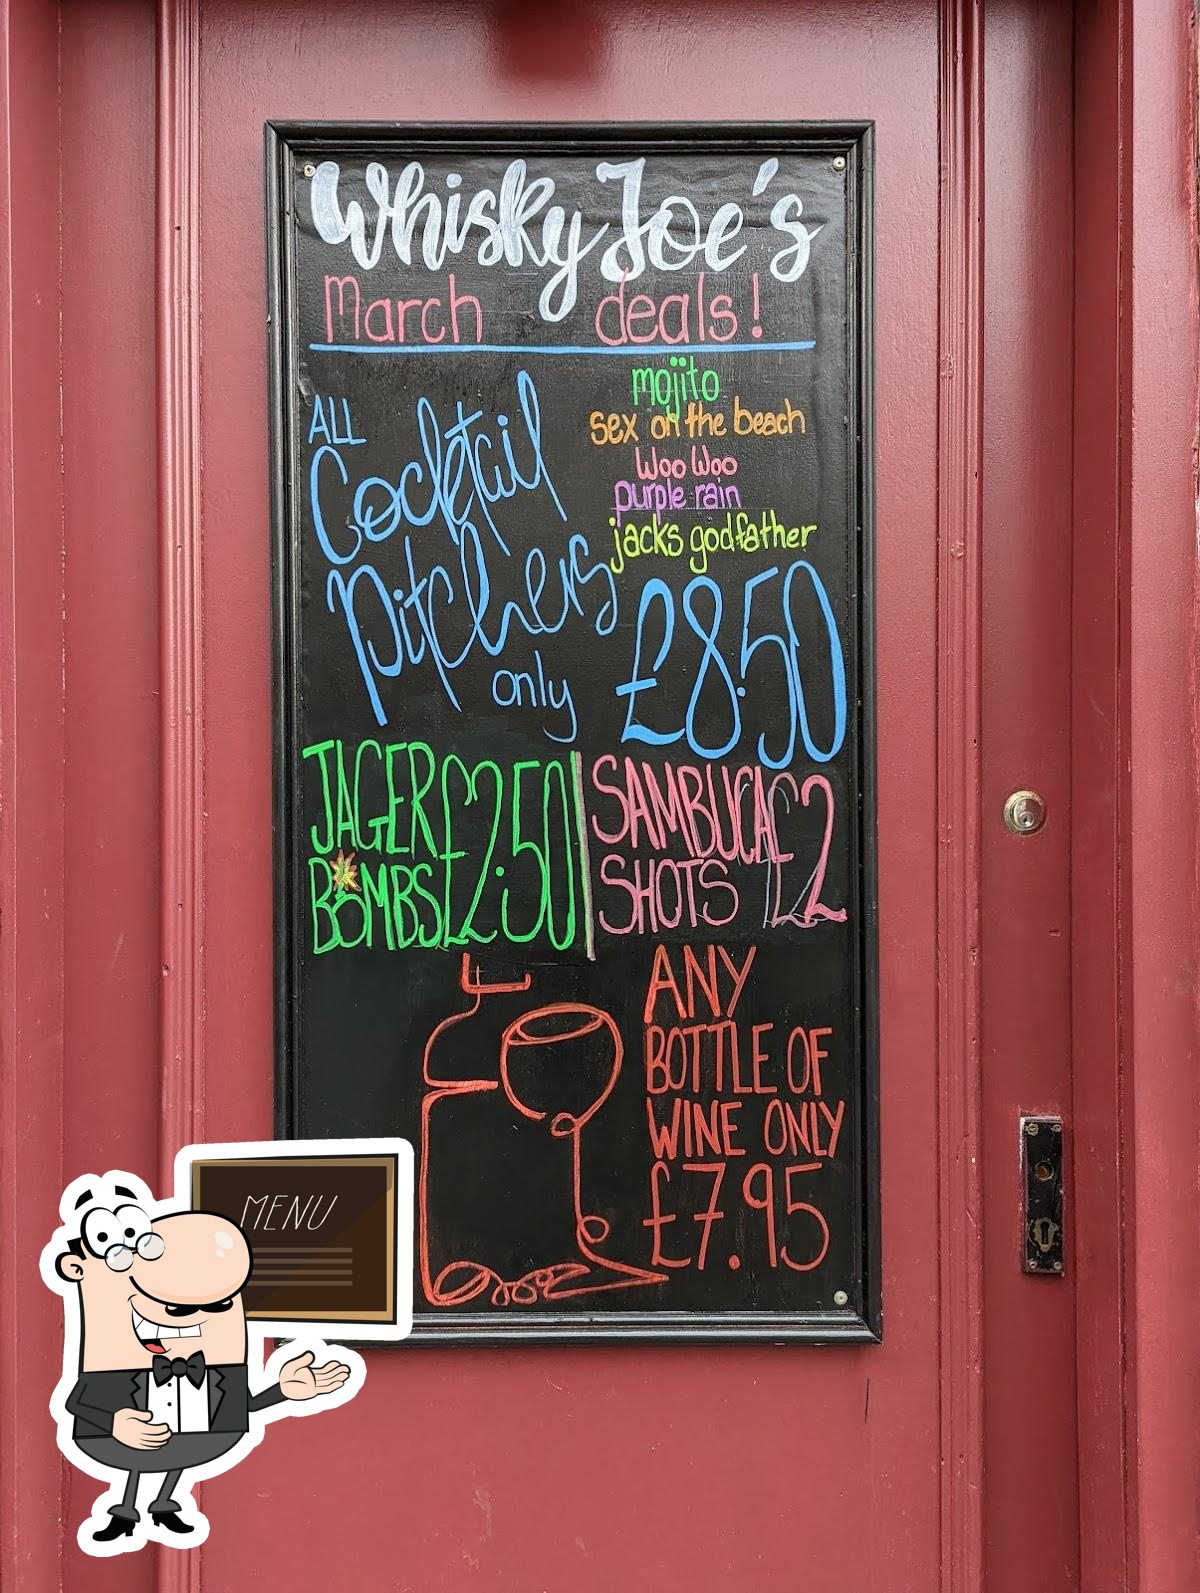 Whisky Joe's
March deals!
ALL
Cocktail
Pitchers
only
mojito
sex on the beach
Woo Woo
purple rain
jacks godfather
£8.50
JAGER
BOMBS
£2.50
SAMBUCA
SHOTS
£2
ANY
BOTTLE OF
WINE ONLY
£7.95
MENU